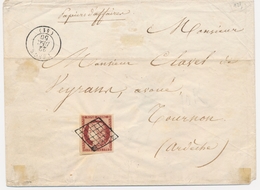 Papiers d'affaires
Monsieur
Monsieur Clavel de
Veyrans, avoué
Tournon
(Ardèche)